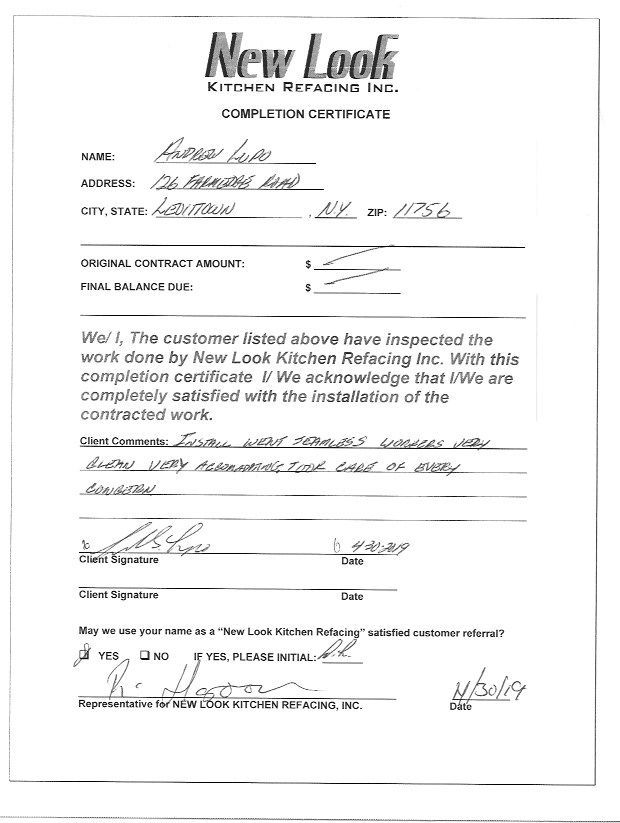 New Look
KITCHEN REFACING INC.
COMPLETION CERTIFICATE
NAME: ANDREW LUPO
ADDRESS: 126 FARMEDGE ROAD
CITY, STATE: LEVITTOWN , N.Y. ZIP: 11756
ORIGINAL CONTRACT AMOUNT: $
FINAL BALANCE DUE: $
We/ I, The customer listed above have inspected the
work done by New Look Kitchen Refacing Inc. With this
completion certificate I/ We acknowledge that I/We are
completely satisfied with the installation of the
contracted work.
Client Comments: INSTALL WENT SEAMLESS WORKERS VERY
CLEAN VERY ACCOMADATING, TOOK CARE OF EVERY
CONCERN
4-30-2019
Client Signature Date
Client Signature Date
May we use your name as a “New Look Kitchen Refacing” satisfied customer referral?
YES NO IF YES, PLEASE INITIAL:
4/30/19
Representative for NEW LOOK KITCHEN REFACING, INC. Date